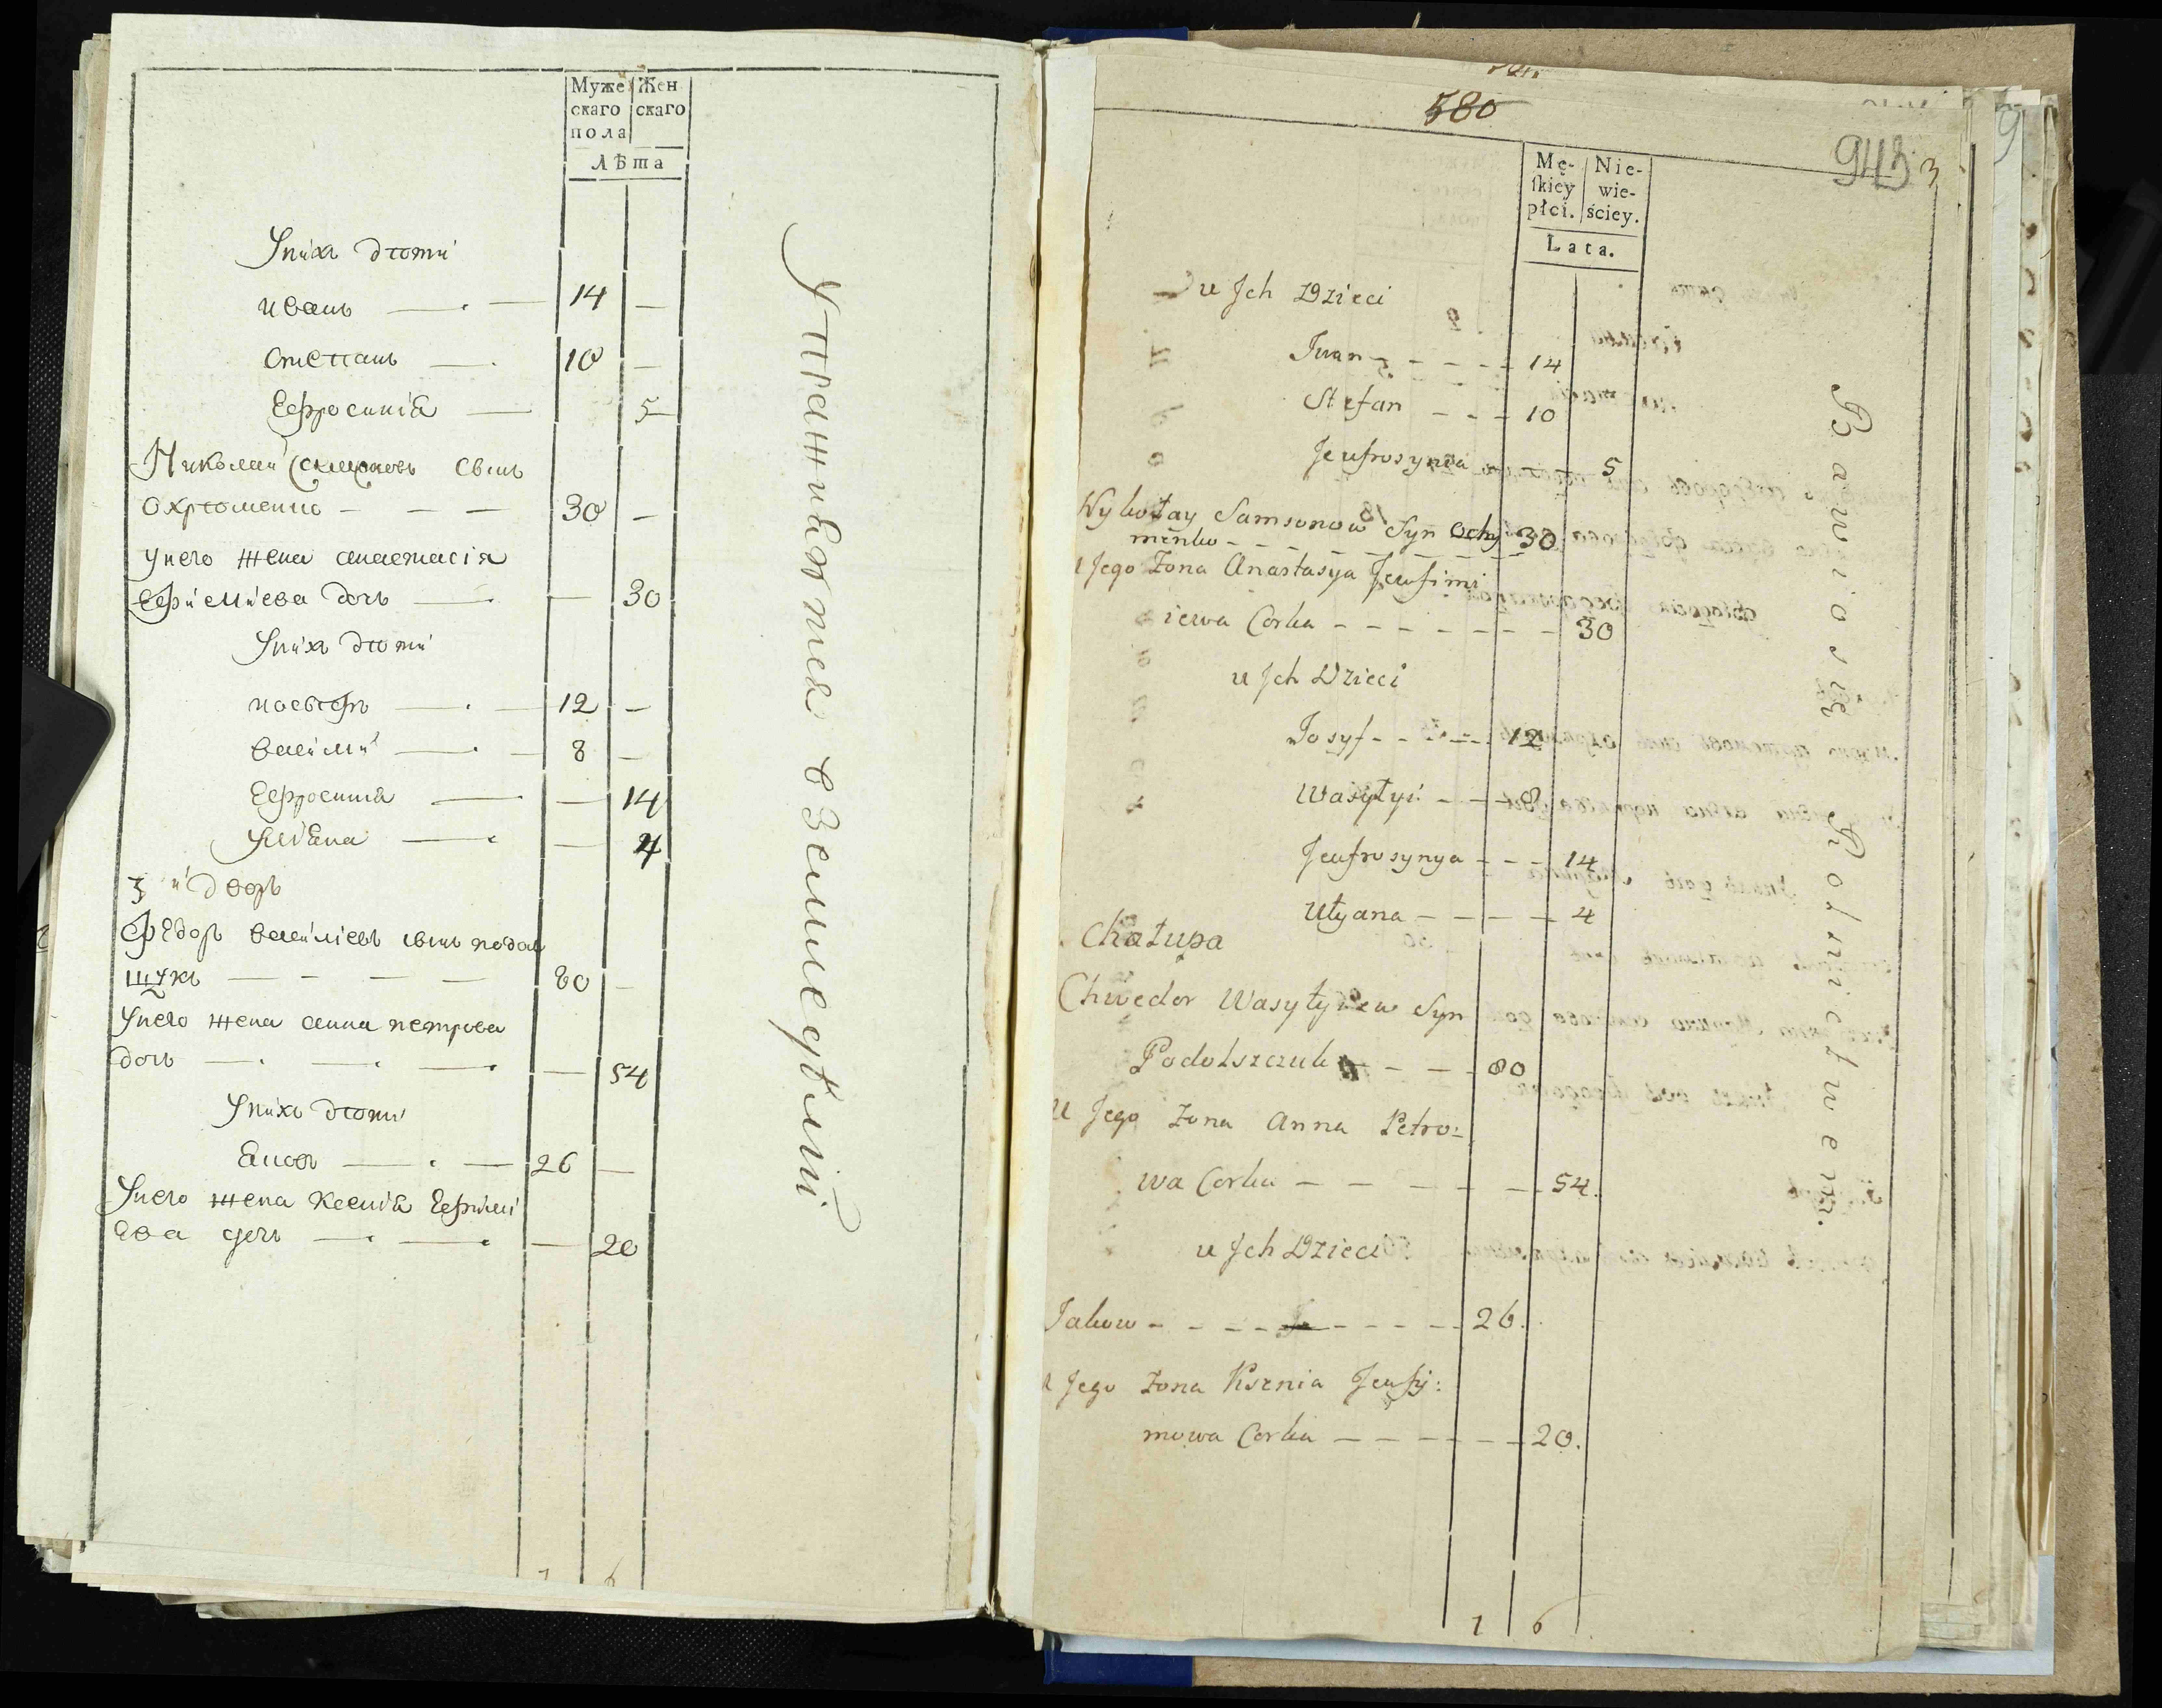 Муже Жен
скаго скаго
пола
Лѣта
У нихъ дѣти
иванъ — 14 —
Степанъ — 10 —
Ефросиніа — 5
Николай Самсоновъ Сынъ
Охрѣменко — — — 30 —
У него жена анастасія
Ефиміева дочь — — 30
У нихъ дѣти
иосѣфъ — 12 —
василій — 8 —
Ефросиніа — — 14
Улиѧна — — 4
3 й дворъ
Федоръ василіевъ сынъ подол
щукъ — — — — 80 —
У него жена анна петрова
дочь — — — — 54
У нихъ дѣти
ѧковъ — — 26 —
У него жена Ксениѧ Ефимі
ева дочь — — — 20
7 6
Упражняются в Земледѣлии
580
943
3
Mę- Nie-
skiey wie-
płci. ściey.
Lata.
u Jch Dzieci
Jwan - - - - 14
Stefan - - - 10
Jeufrosynia 5
Wykołay Samsonow Syn Ochy 30
menko - - - - - - -
u Jego Żona Anastasya Jeufimi
iewa Corka - - - - - - - 30
u Jch Dzieci
Josyf - - - - - 12
Wasyłyi - - - 8
Jeufrosynya - - - 14
Ułyana - - - - 4
Chałupa
Chwedor Wasyłyiew Syn
Podolszczuk - - - 80
u Jego Żona Anna Petro:
wa Corka - - - - - 54.
u Jch Dzieci
Jakow - - - - - - - - 26.
u Jego Żona Ksenia Jeufij:
mowa Corka - - - - - 20.
7 6
Bawio się Rolnictwem.